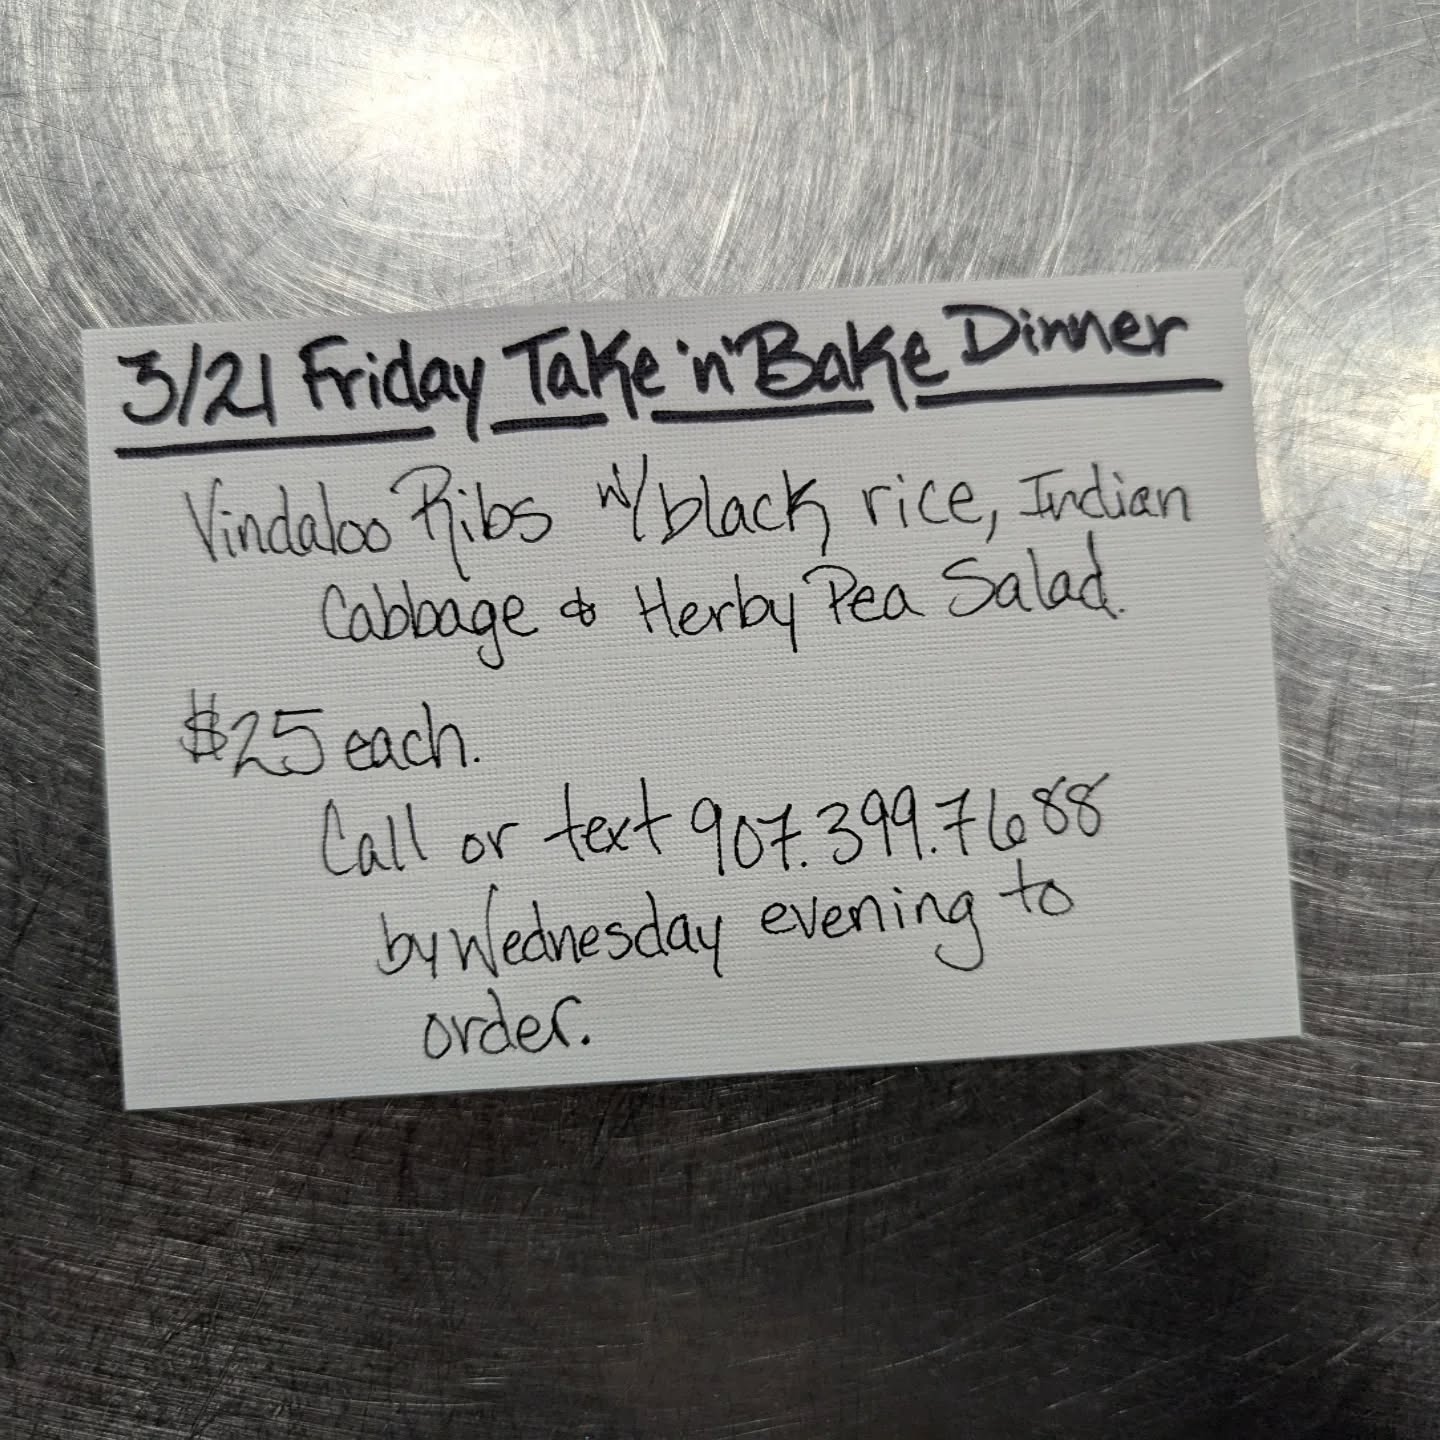 3/21 Friday Take 'n' Bake Dinner
Vindaloo Ribs w/ black rice, Indian
Cabbage & Herby Pea Salad.
$25 each.
Call or text 907.399.7688
by Wednesday evening to
order.